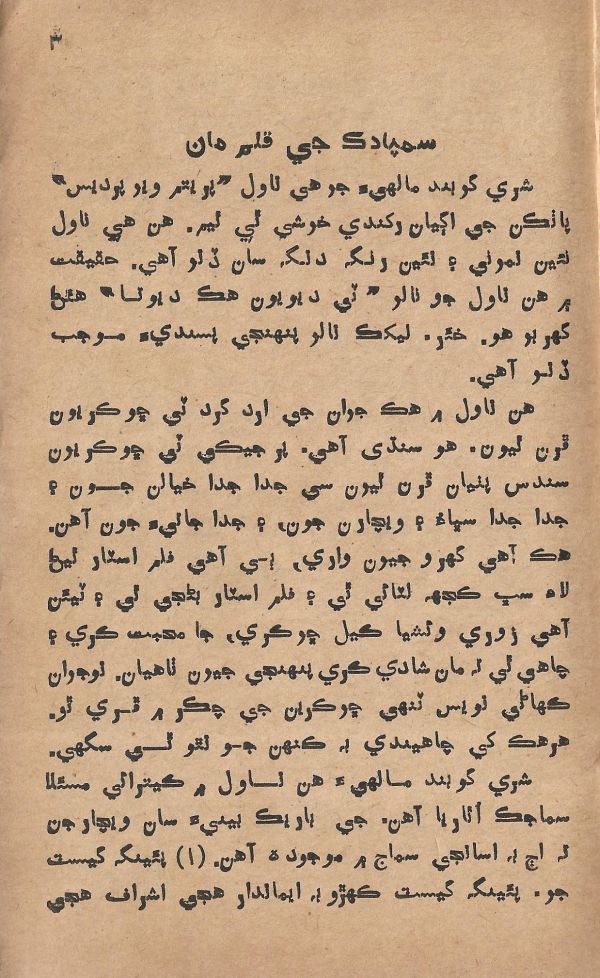 ۳
سمپادڪ جي قلم مان
شري گوبند مالهيءَ جو هي ناول ”پريتم ويو پرديس“
پاٺڪن جي اڳيان رکندي خوشي ٿي ٿيم. هن هي ناول
نئين نموني ۽ نئين رنگه ڍنگه سان ڏنو آهي. حقيقت
۾ هن ناول جو نالو ”ٽي ديويون هڪ ديوتا“ هئڻ
گهربو هو. خير. ليکڪ نالو پنهنجي پسنديءَ موجب
ڏنو آهي.
هن ناول ۾ هڪ جوان جي ارد گرد ٽي ڇوڪريون
ڦرن ٿيون. هو سنڌي آهي. پر جيڪي ٽي ڇوڪريون
سندس پٺيان ڦرن ٿيون سي جدا جدا خيالن جون ۽
جدا جدا سڀاءَ ۽ ويچارن جون، ۽ جدا جاتيءَ جون آهن.
هڪ آهي گهرو جيون واري، ٻي آهي فلم اسٽار ٿيڻ
لاءِ سڀ ڪجهه لٽائي ٿي ۽ فلم اسٽار بڻجي ٿي ۽ ٽين
آهي زوري وئشيا ڪيل ڇوڪري، جا محبت ڪري ۽
چاهي ٿي ته مان شادي ڪري پنهنجي جيون ٺاهيان. نوجوان
ڪهاڻي نويس ٽنهي ڇوڪرين جي چڪر ۾ ڦري ٿو.
هرهڪ کي چاهيندي به ڪنهن جو نٿو ٿي سگهي.
شري گوبند مالهيءَ هن ناول ۾ ڪيترائي مسئلا
سماجڪ اٿاريا آهن. جي باريڪ بينيءَ سان ويچارجن
ته اڄ به اسانجي سماج ۾ موجوده آهن. (۱) پئينگه گيسٽ
جو. پئينگه گيسٽ ڪهڙو به ايماندار هجي اشراف هجي